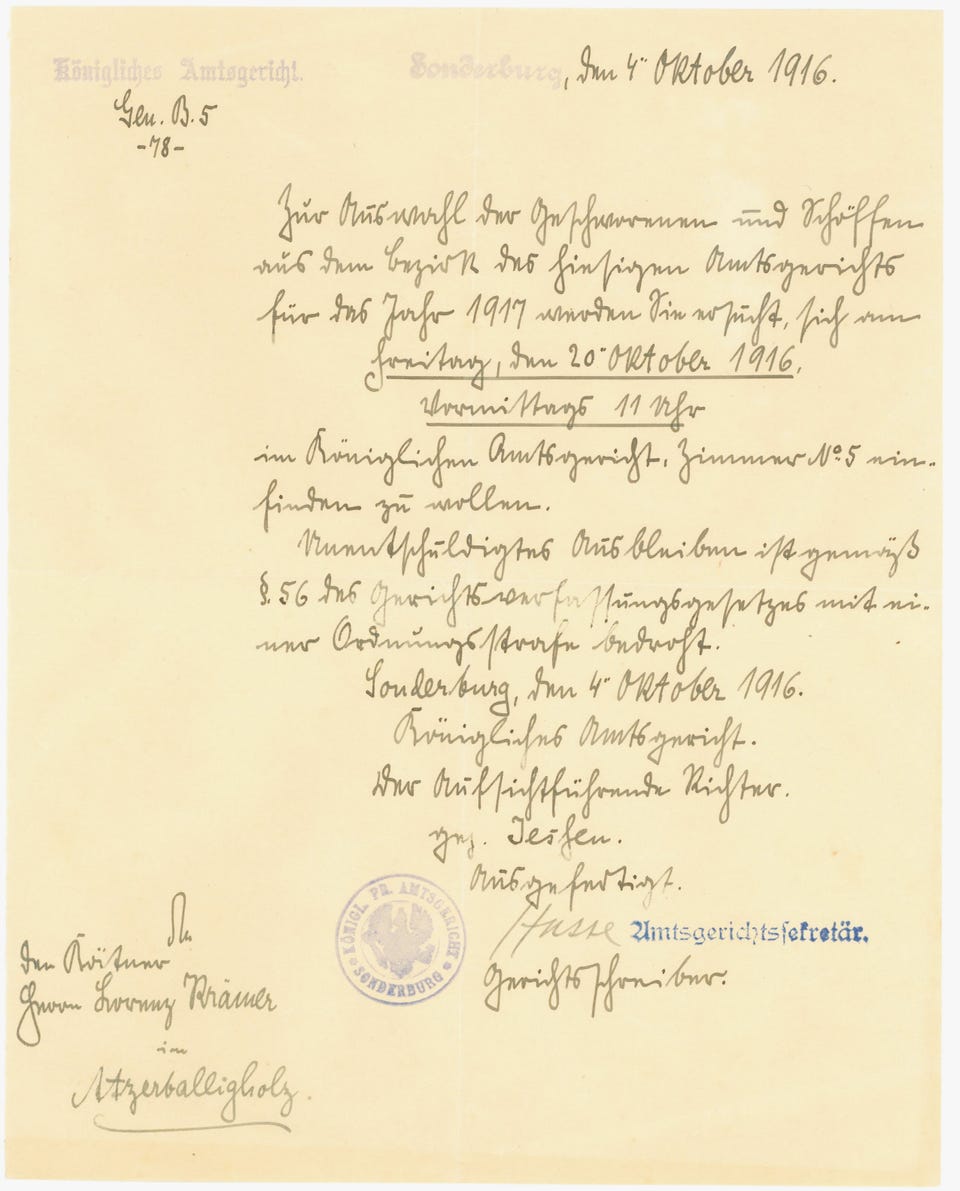 Königliches Amtsgericht.
Sonderburg, den 4" Oktober 1916.
Gen. B. 5
-78-
Zur Auswahl der Geschworenen und Schöffen
aus dem Bezirk des hiesigen Amtsgerichts
für das Jahr 1917 werden Sie ersucht, sich am
Freitag, den 20" Oktober 1916,
Vormittags 11 Uhr
im Königlichen Amtsgericht, Zimmer No. 5 ein-
finden zu wollen.
Unentschuldigtes Ausbleiben ist gemäß
§. 56 des Gerichtsverfassungsgesetzes mit ei-
ner Ordnungsstrafe bedroht.
Sonderburg, den 4" Oktober 1916.
Königliches Amtsgericht.
Der Aufsichtführende Richter.
gez. Jessen.
Ausgefertigt.
Amtsgerichtssekretär.
Gerichtsschreiber.
KÖNIGL. PR. AMTSGERICHT
* SONDERBURG *
An
den Kätner
Herrn Lorenz Krämer
in
Atzerballigholz.